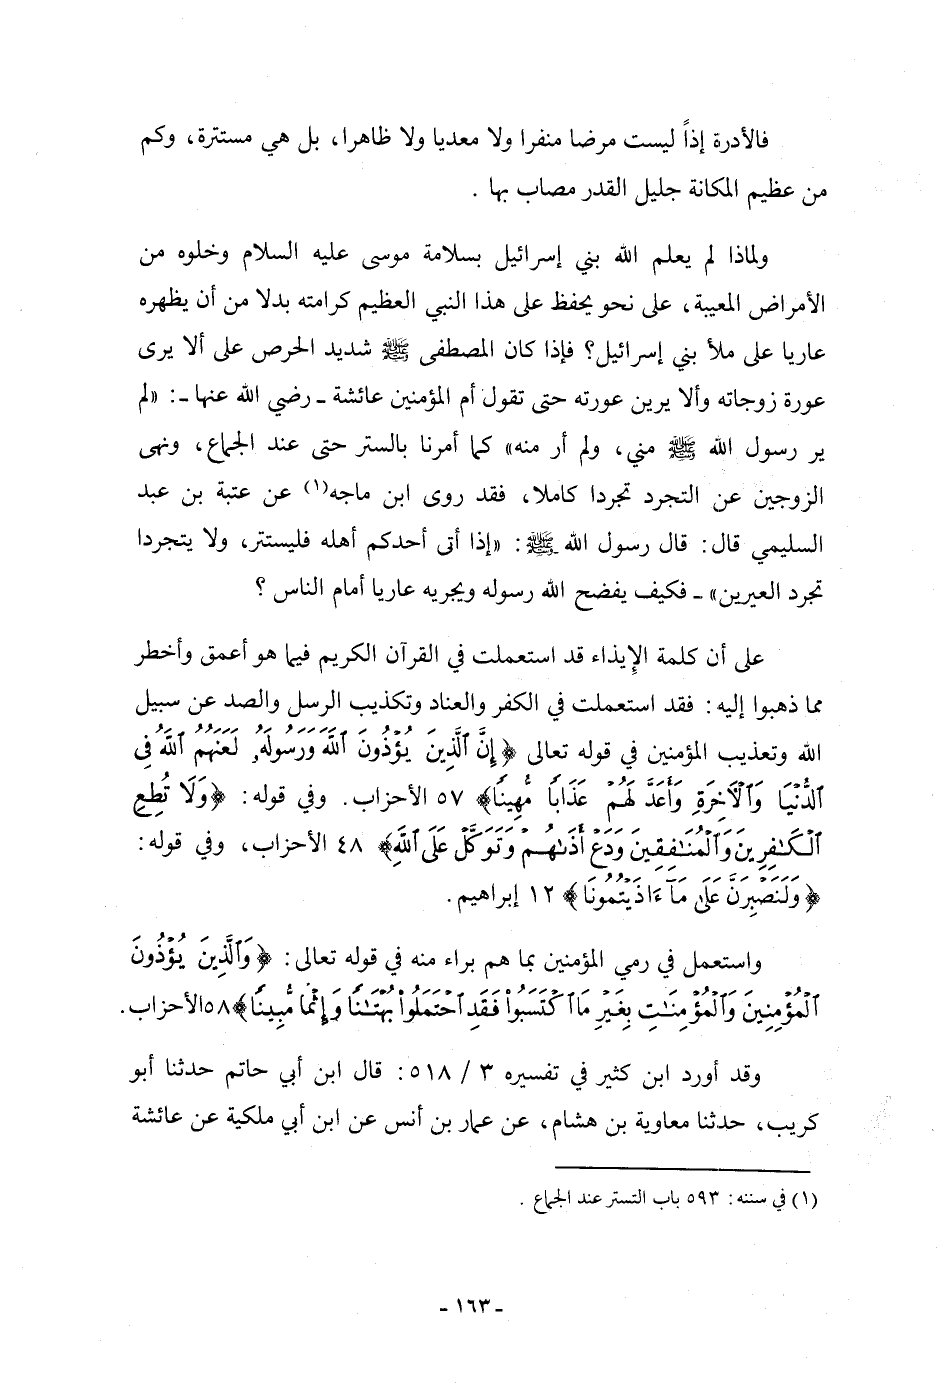 فالأدرة إذاً ليست مرضا منفرا ولا معديا ولا ظاهرا، بل هي مستترة، وكم
من عظيم المكانة جليل القدر مصاب بها .
ولماذا لم يعلم الله بني إسرائيل بسلامة موسى عليه السلام وخلوه من
الأمراض المعيبة، على نحو يحفظ على هذا النبي العظيم كرامته بدلا من أن يظهره
عاريا على ملأ بني إسرائيل؟ فإذا كان المصطفى ﷺ شديد الحرص على ألا يرى
عورة زوجاته وألا يرين عورته حتى تقول أم المؤمنين عائشة ـ رضي الله عنها ـ: «لم
ير رسول الله ﷺ مني، ولم أر منه» كما أمرنا بالستر حتى عند الجماع، ونهى
الزوجين عن التجرد تجردا كاملا، فقد روى ابن ماجه(١) عن عتبة بن عبد
السليمي قال: قال رسول الله ﷺ: «إذا أتى أحدكم أهله فليستتر، ولا يتجردا
تجرد العيرين» ـ فكيف يفضح الله رسوله ويجريه عاريا أمام الناس ؟
على أن كلمة الإيذاء قد استعملت في القرآن الكريم فيما هو أعمق وأخطر
مما ذهبوا إليه: فقد استعملت في الكفر والعناد وتكذيب الرسل والصد عن سبيل
الله وتعذيب المؤمنين في قوله تعالى ﴿إِنَّ ٱلَّذِينَ يُؤۡذُونَ ٱللَّهَ وَرَسُولَهُۥ لَعَنَهُمُ ٱللَّهُ فِى
ٱلدُّنۡيَا وَٱلۡأٓخِرَةِ وَأَعَدَّ لَهُمۡ عَذَابًا مُّهِينًا﴾ ٥٧ الأحزاب. وفي قوله: ﴿وَلَا تُطِعِ
ٱلۡكَٰفِرِينَ وَٱلۡمُنَٰفِقِينَ وَدَعۡ أَذَىٰهُمۡ وَتَوَكَّلۡ عَلَى ٱللَّهِ﴾ ٤٨ الأحزاب، وفي قوله:
﴿وَلَنَصۡبِرَنَّ عَلَىٰ مَآ ءَاذَيۡتُمُونَا﴾ ١٢ إبراهيم.
واستعمل في رمي المؤمنين بما هم براء منه في قوله تعالى: ﴿وَٱلَّذِينَ يُؤۡذُونَ
ٱلۡمُؤۡمِنِينَ وَٱلۡمُؤۡمِنَٰتِ بِغَيۡرِ مَا ٱكۡتَسَبُواْ فَقَدِ ٱحۡتَمَلُواْ بُهۡتَٰنًا وَإِثۡمًا مُّبِينًا﴾٥٨الأحزاب.
وقد أورد ابن كثير في تفسيره ٣ / ٥١٨: قال ابن أبي حاتم حدثنا أبو
كريب، حدثنا معاوية بن هشام، عن عمار بن أنس عن ابن أبي ملكية عن عائشة
(١) في سننه: ٥٩٣ باب التستر عند الجماع .
ـ ١٦٣ ـ